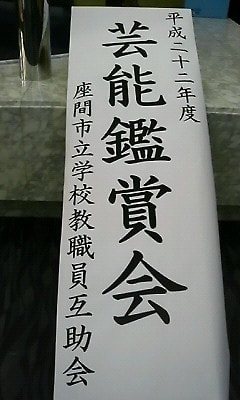 平成二十二年度
芸能鑑賞会
座間市立学校教職員互助会